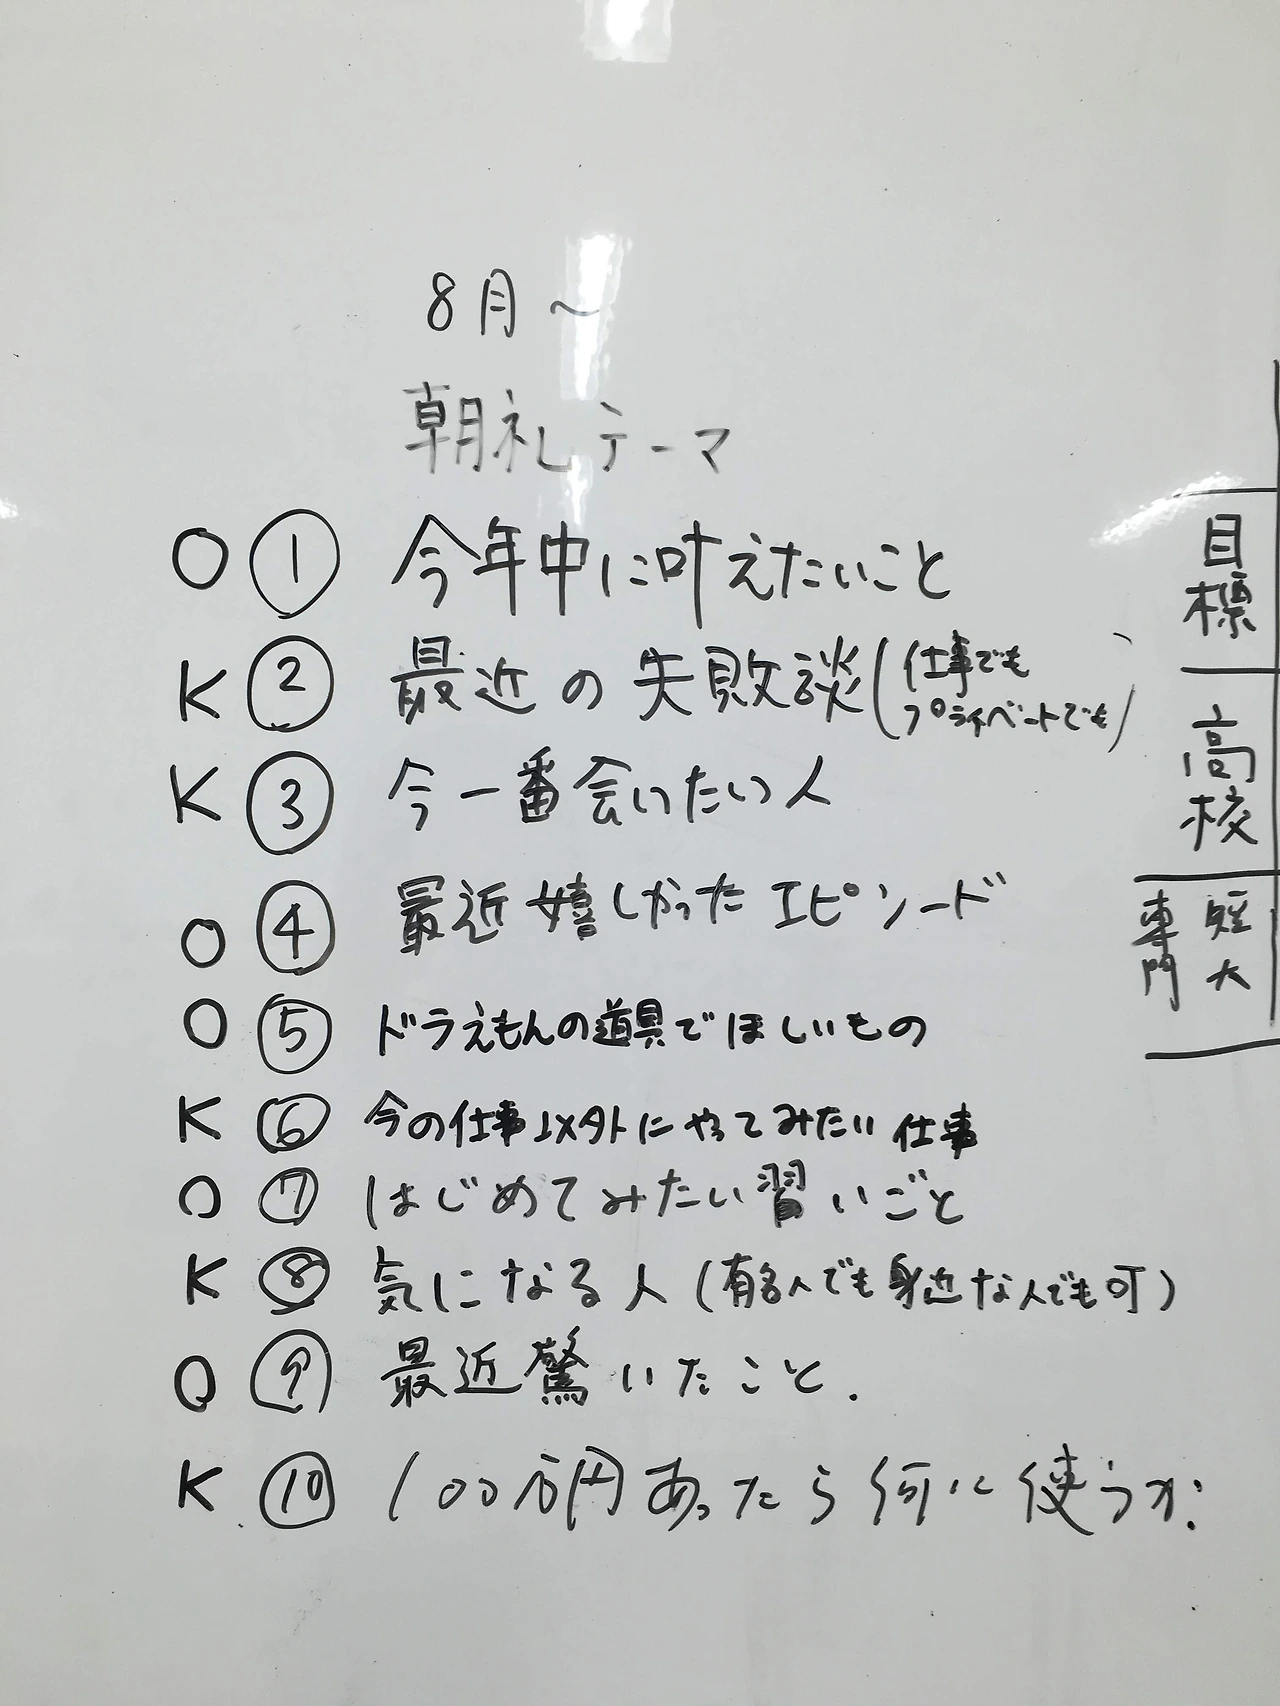 8月～
朝礼テーマ
O ① 今年中に叶えたいこと
K ② 最近の失敗談(仕事でも
プライベートでも)
K ③ 今一番会いたい人
O ④ 最近嬉しかったエピソード
O ⑤ ドラえもんの道具でほしいもの
K ⑥ 今の仕事以外にやってみたい仕事
O ⑦ はじめてみたい習いごと
K ⑧ 気になる人(有名人でも身近な人でも可)
O ⑨ 最近驚いたこと.
K ⑩ 100万円あったら何に使うか
目標
高校
短大
専門